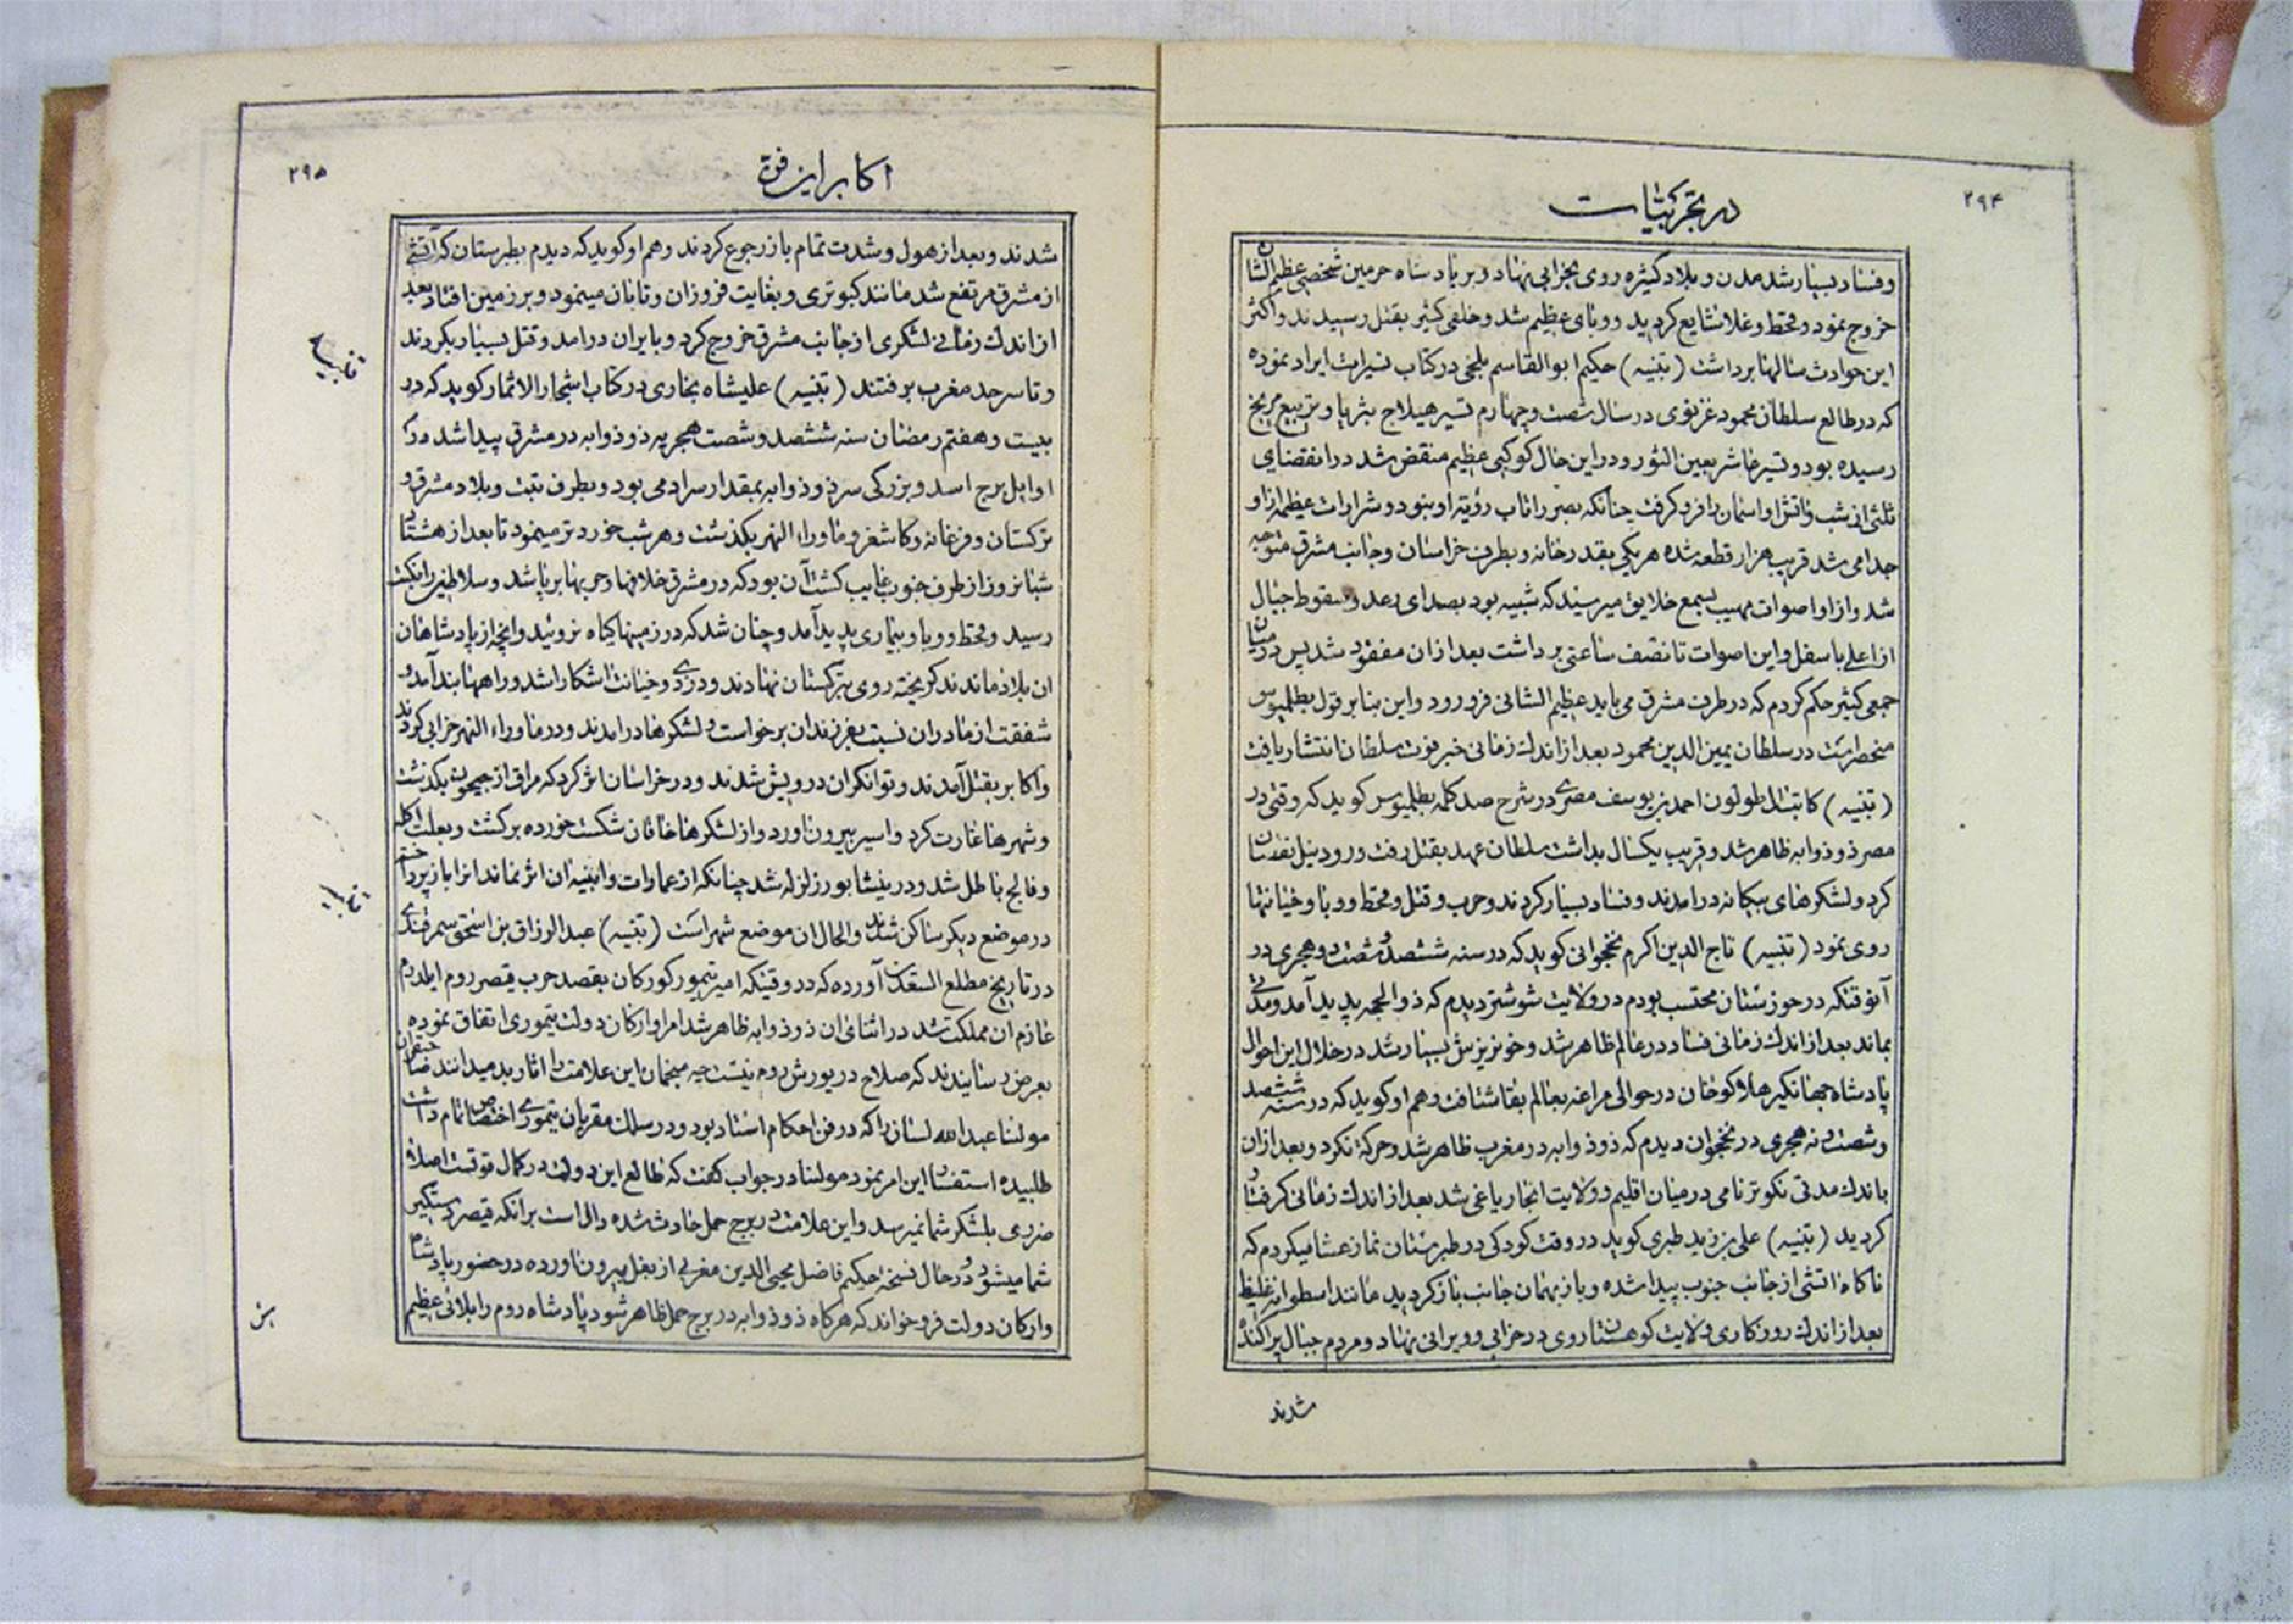 ۲۹۴
در تجربیات
وفساد بسیار شد مدن و بلاد کثیره روی بخرابی نهاد و بر پادشاه حرمین شخصی عظیم الشان
خروج نمود و قحط و غلا شایع کردید و وبای عظیم شد و خلقی کثیر بقتل رسیدند و اکثر
این حوادث سالها برداشت (تنبیه) حکیم ابوالقاسم بلخی در کتاب تسیرات ایراد نموده
که در طالع سلطان محمود غزنوی در سال شصت و چهارم تسیر هیلاج بثریا و تربیع مریخ
رسیده بود و تسیر عاشر بعین الثور و در این حال کوکبی عظیم منقض شد در انقضای
ثلثی از شب و اتش او اسمان را فرو کرفت چنانکه بصر را تاب رؤیة او نبود و شرارات عظیمه از او
جدا می شد قریب هزار قطعه شده هر یکی بقدر خانه و بطرف خراسان و جانب مشرق متوجه
شد و از او اصوات مهیب بسمع خلایق میرسید که شبیه بود بصدای رعد و سقوط جبال
از اعلی باسفل و این اصوات تا نصف ساعتی برداشت بعد از ان مفقود شد پس در میان
جمعی کثیر حکم کردم که در طرف مشرق می باید عظیم الشانی فرو رود و این بنا بر قول بطلمیوس
منحصر است در سلطان یمین الدین محمود بعد از اندك زمانی خبر فوت سلطان انتشار یافت
(تنبیه) کاتب ال طولون احمد بن یوسف مصری در شرح صد کلمه بطلمیوس کوید که وقتی در
مصر ذو ذوابه ظاهر شد و قریب یکسال بداشت سلطان عهد بقتل رفت و رود نیل نقصان
کرد و لشکرهای بیکانه درامدند و فساد بسیار کردند و حرب و قتل و قحط و وبا و خیانتها
روی نمود (تنبیه) تاج الدین اکرم نخجوانی کوید که در سنه ششصد و شصت و دو هجری در
آنوقتکه در خوزستان محتسب بودم در ولایت شوشتر دیدم که ذو الجمه پدید آمد و مدتی
بماند بعد از اندك زمانی فساد در عالم ظاهر شد و خونریزش بسیار شد در خلال این احوال
پادشاه جهانکیر هلاکوخان در حوالی مراغه بعالم بقا شتافت و هم او کوید که در سنه ششصد
و شصت و نه هجری در نخجوان دیدم که ذو ذوابه در مغرب ظاهر شد و حرکة نکرد و بعد از ان
باندك مدتی نکوتر نامی در میان اقلیم و ولایت انجا یاغی شد بعد از اندك زمانی کرفتار
کردید (تنبیه) علی بن زید طبری کوید در وقت کودکی در طبرستان نماز عشا میکردم که
ناکاه اتشی از جانب جنوب پیدا شده و باز بهمان جانب باز کردید مانند اسطوانه غلیظ
بعد از اندك روزکاری ولایت کوهستان روی در خرابی و ویرانی نهاد و مردم جبال پراکنده
شدند
۲۹۵
اکابر این فن
شدند و بعد از هول و شدت تمام باز رجوع کردند و هم او کوید که دیدم بطبرستان که آتشی
از مشرق مرتفع شد مانند کبوتری و بغایت فروزان و تابان مینمود و بر زمین افتاد بعد
از اندك زمانی لشکری از جانب مشرق خروج کرد و بایران درامد و قتل بسیار بکردند
و تا سرحد مغرب برفتند (تنبیه) علیشاه بخاری در کتاب اشجار و الاثمار کوید که در
بیست و هفتم رمضان سنه ششصد و شصت هجریه ذو ذوابه در مشرق پیدا شد در
اوایل برج اسد و بزرکی سر ذو ذوابه بمقدار سر ادمی بود و بطرف تبت و بلاد مشرق و
ترکستان و فرغانه و کاشغر و ماوراء النهر بکذشت و هر شب خوردتر مینمود تا بعد از هشتاد
شبانروز از طرف جنوب غایب کشت آن بود که در مشرق خلافها و حربها برپا شد و سلاطین را نکبت
رسید و قحط و وبا و بیماری پدید آمد و چنان شد که در زمینها کیاه نروئید و انچه از پادشاهان
ان بلاد ماندند کریخته روی بترکستان نهادند و دزدی و خیانت اشکارا شد و راهها بند آمد و
شفقت از مادران نسبت بفرزندان برخواست و لشکرها درامدند و در ماوراء النهر خرابی کردند
و اکابر بقتل آمدند و توانکران درویش شدند و در خراسان اثر کرد که براق از جیحون بکذشت
و شهرها غارت کرد و اسیر بیرون اورد و از لشکرها خاقان شکست خورده برکشت و بعلت اکله
و فالج باطل شد و در نیشابور زلزله شد چنانکه از عمارات و ابنیه ان اثر نماند انرا باز پرداختند
در موضع دیکر ساکن شدند والحال ان موضع شهر است (تنبیه) عبدالرزاق بن اسحق سمرقندی
در تاریخ مطلع السعدین آورده که در وقتیکه امیر تیمور کورکان بقصد حرب قیصر روم ایلدرم
عازم ان مملکت شد در اثنای ان ذو ذوابه ظاهر شد امرا و ارکان دولت تیموری اتفاق نموده
بعرض رسانیدند که صلاح در یورش روم نیست چه منجمان این علامت را اثار بد میدانند صاحبقران
مولنا عبدالله لسان را که در فن احکام استاد بود و در سلك مقربان تیموری اختصاص تمام داشت
طلبیده استفسار این امر نمود مولنا در جواب کفت که طالع این دولت در کمال قوتست اصلا
ضرری بلشکر شما نمیرسد و این علامت در برج حمل حادث شده دال است بر انکه قیصر دستکیر
شما میشود و در حال نسخه حکیم فاضل محیی الدین مغربی از بغل بیرون اورده در حضور پادشاه
و ارکان دولت فرو خواند که هرکاه ذو ذوابه در برج حمل ظاهر شود پادشاه روم را بلائی عظیم